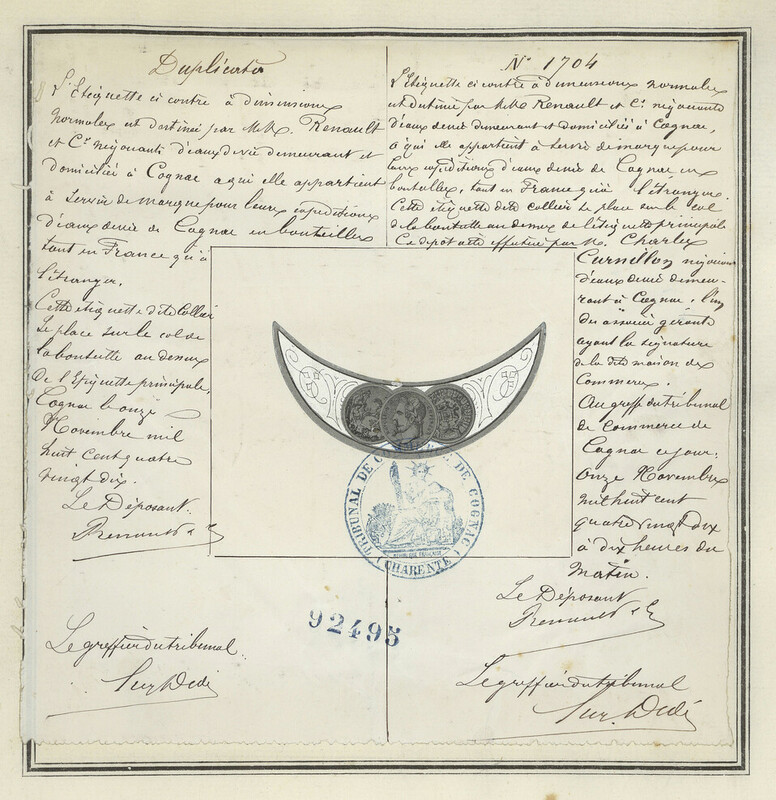 Duplicata
L'Etiquette ci contre à dimensions
normales est destinée par M.M. Renault
et Cie négociants d'eaux de vie demeurant et
domiciliés à Cognac à qui elle appartient
à servir de marque pour leurs expéditions
d'eaux de vie de Cognac en bouteilles
tant en France qu'à
l'étranger.
Cette étiquette dite Collier
se place sur le col de
la bouteille au dessus
de l'Etiquette principale,
Cognac le onze
Novembre mil
huit cent quatre
vingt dix.
Le Déposant
Renault & Cie
Le greffier du tribunal
N° 1704
L'Etiquette ci contre à dimensions normales
est destinée par M.M. Renault et Cie négociants
d'eaux de vie demeurant et domiciliés à Cognac,
à qui elle appartient à servir de marque pour
leurs expéditions d'eaux de vie de Cognac en
bouteilles, tant en France qu'à l'étranger.
Cette étiquette dite collier se place sur le col
de la bouteille au dessus de l'étiquette principale
Ce dépôt a été effectué par M. Charles
Curnillon négociant
d'eaux de vie demeu-
rant à Cognac, l'un
des associés gérants
ayant la signature
de la dite maison de
Commerce.
Au greffe du tribunal
de Commerce de
Cognac ce jour:
onze Novembre
mil huit cent
quatre vingt dix
à dix heures du
matin.
Le Déposant
Renault & Cie
Le greffier du tribunal
TRIBUNAL DE COMMERCE DE COGNAC
RÉPUBLIQUE FRANÇAISE
(CHARENTE)
92495